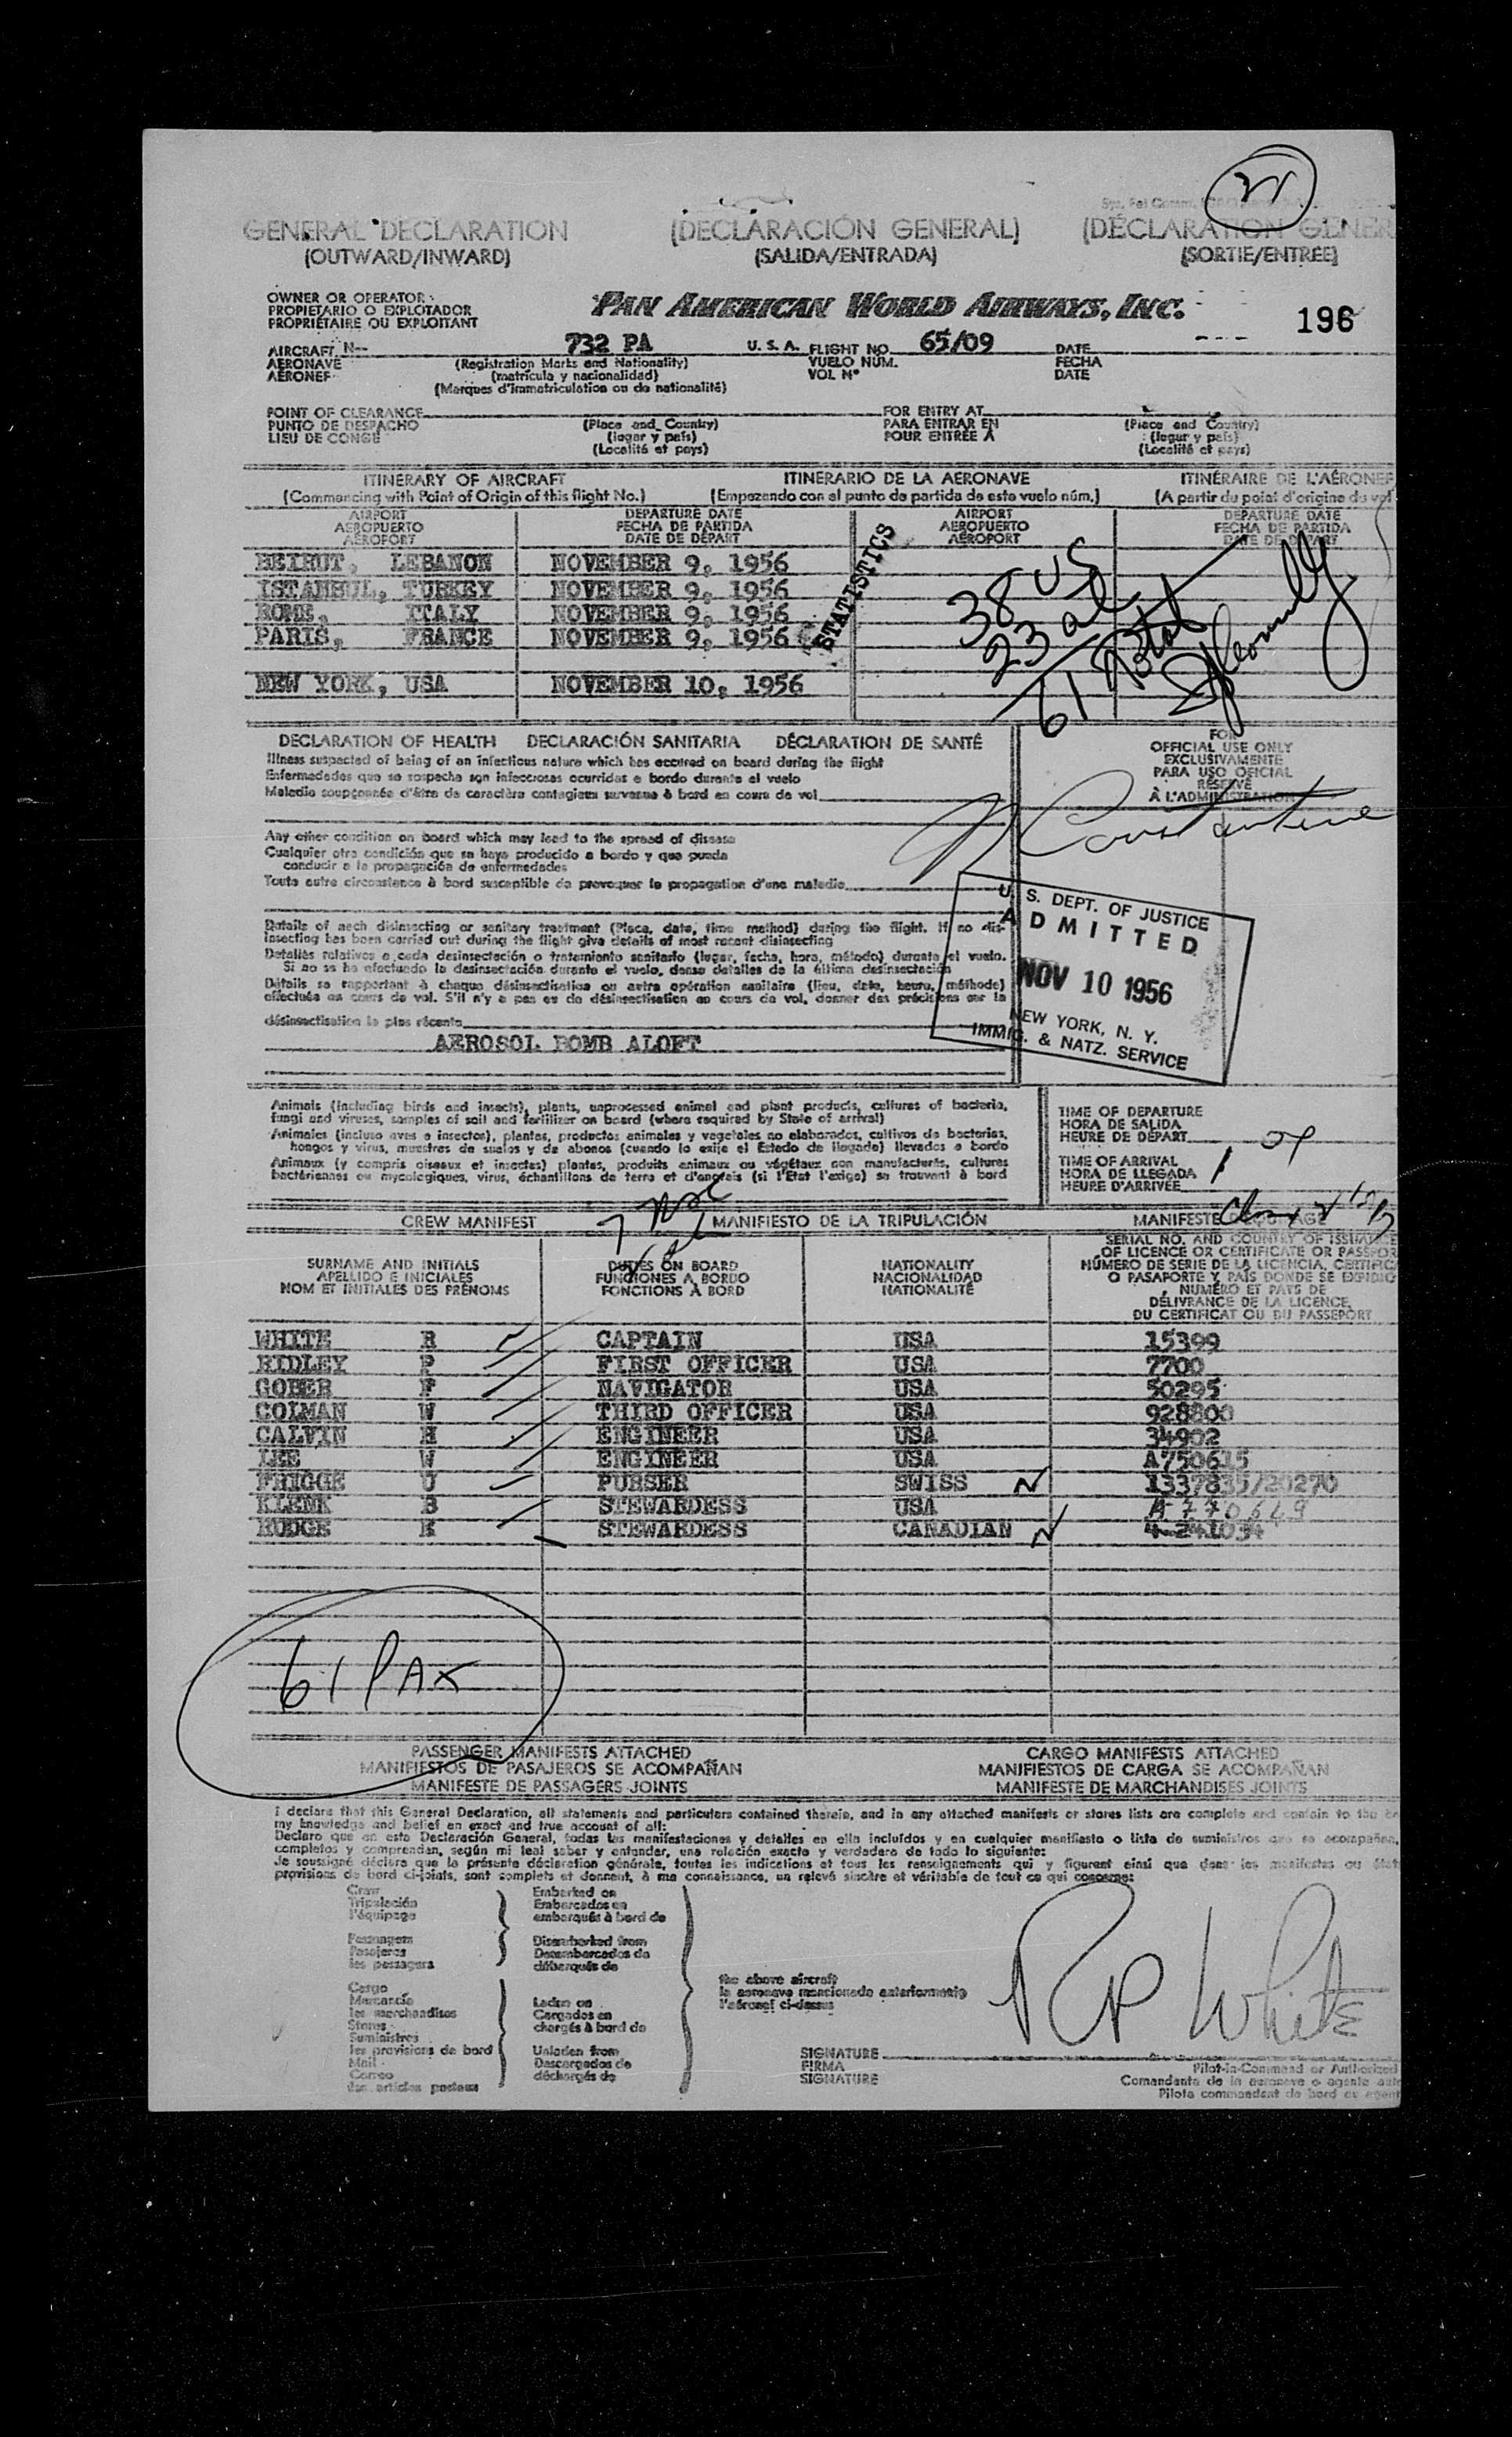 GENERAL DECLARATION (DECLARACIÓN GENERAL) (DÉCLARATION GENER
(OUTWARD/INWARD) (SALIDA/ENTRADA) (SORTIE/ENTREE)
OWNER OR OPERATOR
PROPIETARIO O EXPLOTADOR
PROPRIÉTAIRE OU EXPLOITANT
PAN AMERICAN WORLD AIRWAYS, INC.
196
AIRCRAFT N-- 732 PA U. S. A. FLIGHT NO. 65/09 DATE
AERONAVE (Registration Marks and Nationality) VUELO NÚM. FECHA
AÉRONEF (matrícula y nacionalidad) VOL Nº DATE
(Marques d'immatriculation ou de nationalité)
POINT OF CLEARANCE FOR ENTRY AT
PUNTO DE DESPACHO (Place and Country) PARA ENTRAR EN (Place and Country)
LIEU DE CONGÉ (lugar y país) POUR ENTRÉE À (lugar y país)
(Localité et pays) (Localité et pays)
ITINERARY OF AIRCRAFT ITINERARIO DE LA AERONAVE ITINÉRAIRE DE L'AÉRONEF
(Commencing with Point of Origin of this flight No.) (Empezando con el punto de partida de este vuelo núm.) (A partir du point d'origine du vol
AIRPORT DEPARTURE DATE AIRPORT DEPARTURE DATE
AEROPUERTO FECHA DE PARTIDA AEROPUERTO FECHA DE PARTIDA
AÉROPORT DATE DE DÉPART AÉROPORT DATE DE DÉPART
BEIRUT, LEBANON NOVEMBER 9, 1956
ISTANBUL, TURKEY NOVEMBER 9, 1956
ROME, ITALY NOVEMBER 9, 1956
PARIS, FRANCE NOVEMBER 9, 1956
NEW YORK, USA NOVEMBER 10, 1956
STATISTICS
38 US
23 al
61 Total
DECLARATION OF HEALTH DECLARACIÓN SANITARIA DÉCLARATION DE SANTÉ
Illness suspected of being of an infectious nature which has occured on board during the flight
Enfermedades que se sospecha son infecciosas ocurridas a bordo durante el vuelo
Maladie soupçonnée d'être de caractère contagieux survenue à bord en cours de vol
FOR
OFFICIAL USE ONLY
EXCLUSIVAMENTE
PARA USO OFICIAL
RÉSERVÉ
À L'ADMINISTRATION
Constantine
Any other condition on board which may lead to the spread of disease
Cualquier otra condición que se haya producido a bordo y que pueda
conducir a la propagación de enfermedades
Toute autre circonstance à bord susceptible de provoquer la propagation d'une maladie
Details of each disinsecting or sanitary treatment (Place, date, time method) during the flight. If no dis-
insecting has been carried out during the flight give details of most recent disinsecting
Detalles relativos a cada desinsectación o tratamiento sanitario (lugar, fecha, hora, método) durante el vuelo.
Si no se ha efectuado la desinsectación durante el vuelo, dense detalles de la última desinsectación
Détails se rapportant à chaque désinsectisation ou autre opération sanitaire (lieu, date, heure, méthode)
effectuée au cours de vol. S'il n'y a pas eu de désinsectisation au cours de vol, donner des précisions sur la
désinsectisation la plus récente
AEROSOL BOMB ALOFT
U. S. DEPT. OF JUSTICE
ADMITTED
NOV 10 1956
NEW YORK, N. Y.
IMMIG. & NATZ. SERVICE
Animals (including birds and insects), plants, unprocessed animal and plant products, cultures of bacteria,
fungi and viruses, samples of soil and fertilizer on board (where required by State of arrival)
Animales (incluso aves e insectos), plantas, productos animales y vegetales no elaborados, cultivos de bacterias,
hongos y virus, muestras de suelos y de abonos (cuando lo exije el Estado de llegada) llevados a bordo
Animaux (y compris oiseaux et insectes) plantes, produits animaux ou végétaux non manufacturés, cultures
bactériennes ou mycologiques, virus, échantillons de terre et d'engrais (si l'Etat l'exige) se trouvant à bord
TIME OF DEPARTURE
HORA DE SALIDA
HEURE DE DÉPART
TIME OF ARRIVAL
HORA DE LLEGADA
HEURE D'ARRIVÉE
CREW MANIFEST MANIFIESTO DE LA TRIPULACIÓN MANIFESTE
SURNAME AND INITIALS
APELLIDO E INICIALES
NOM ET INITIALES DES PRÉNOMS
DUTIES ON BOARD
FUNCIONES A BORDO
FONCTIONS À BORD
NATIONALITY
NACIONALIDAD
NATIONALITÉ
SERIAL NO. AND COUNTRY OF ISSUANCE
OF LICENCE OR CERTIFICATE OR PASSPOR
NÚMERO DE SERIE DE LA LICENCIA, CERTIFIC
O PASAPORTE Y PAÍS DONDE SE EXPIDIÓ
NUMÉRO ET PAYS DE
DÉLIVRANCE DE LA LICENCE,
DU CERTIFICAT OU DU PASSEPORT
WHITE R CAPTAIN USA 15399
RIDLEY P FIRST OFFICER USA 7700
GOBER F NAVIGATOR USA 50295
COLMAN W THIRD OFFICER USA 928800
CALVIN H ENGINEER USA 34902
LEE W ENGINEER USA A750615
FRIGGE U PURSER SWISS 1337835/20270
KLENK B STEWARDESS USA A-770649
HODGE E STEWARDESS CANADIAN 4-241034
61 PAX
PASSENGER MANIFESTS ATTACHED CARGO MANIFESTS ATTACHED
MANIFIESTOS DE PASAJEROS SE ACOMPAÑAN MANIFIESTOS DE CARGA SE ACOMPAÑAN
MANIFESTE DE PASSAGERS JOINTS MANIFESTE DE MARCHANDISES JOINTS
I declare that this General Declaration, all statements and particulars contained therein, and in any attached manifests or stores lists are complete and contain to the be
my knowledge and belief an exact and true account of all:
Declaro que en esta Declaración General, todas las manifestaciones y detalles en ella incluídos y en cualquier manifiesto o lista de suministros que se acompañen,
completos y comprenden, según mi leal saber y entender, una relación exacta y verdadera de todo lo siguiente:
Je soussigné déclare que la présente déclaration générale, toutes les indications et tous les renseignements qui y figurent ainsi que dans les manifestes ou état
provisions de bord ci-joints, sont complets et donnent, à ma connaissance, un relevé sincère et véritable de tout ce qui concerne:
Crew
Tripulación
l'équipage
Passengers
Pasajeros
les passagers
Cargo
Mercancía
les marchandises
Stores
Suministros
les provisions de bord
Mail
Correo
les articles postaux
Embarked on
Embarcados en
embarqués à bord de
Disembarked from
Desembarcados de
débarqués de
Laden on
Cargados en
chargés à bord de
Unladen from
Descargados de
déchargés de
the above aircraft
la aeronave mencionada anteriormente
l'aéronef ci-dessus
RP White
SIGNATURE
FIRMA
SIGNATURE
Pilot-in-Command or Authorized
Comandante de la aeronave o agente auto
Pilote commandant de bord ou agent